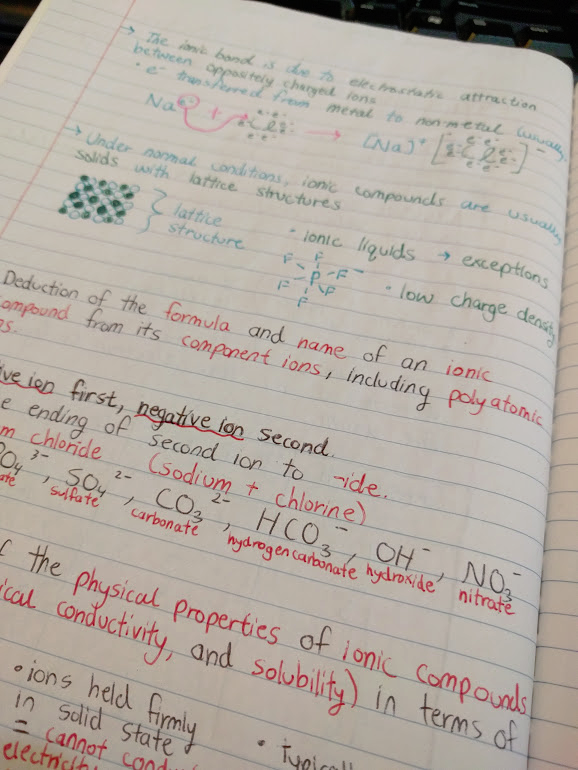 → The ionic bond is due to electrostatic attraction
between oppositely charged ions
· e⁻ transferred from metal to non-metal (usually
Na e⁻ + Cl → [Na]⁺ [Cl]⁻
→ Under normal conditions, ionic compounds are usually
solids with lattice structures
lattice
structure
· ionic liquids → exceptions
F F F P F⁻ F F F
· low charge density
Deduction of the formula and name of an ionic
ompound from its component ions, including polyatomic
s.
ive ion first, negative ion second.
e ending of second ion to -ide.
m chloride (sodium + chlorine)
PO₄³⁻, SO₄²⁻, CO₃²⁻, HCO₃⁻, OH⁻, NO₃⁻
ate sulfate carbonate hydrogencarbonate hydroxide nitrate
f the physical properties of ionic compounds
ical conductivity, and solubility) in terms of
• ions held firmly
in solid state
= cannot cond
electricity
• typicall